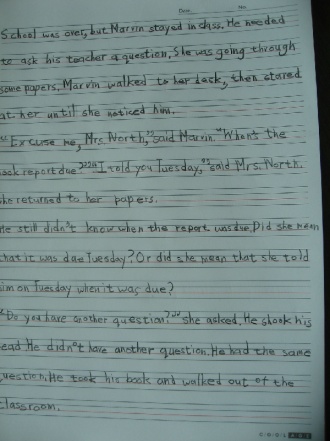 Date No
School was over, but Marvin stayed in class. He needed
to ask his teacher a question. She was going through
some papers. Marvin walked to her desk, then stared
at her until she noticed him.
"Excuse me, Mrs. North," said Marvin. "When's the
ook report due?" "I told you Tuesday," said Mrs. North.
ho returned to her papers.
He still didn't know when the report was due. Did she mean
that it was due Tuesday? Or did she mean that she told
him on Tuesday when it was due?
"Do you have another question?" she asked. He shook his
ead. He didn't have another question. He had the same
question. He took his book and walked out of the
classroom.